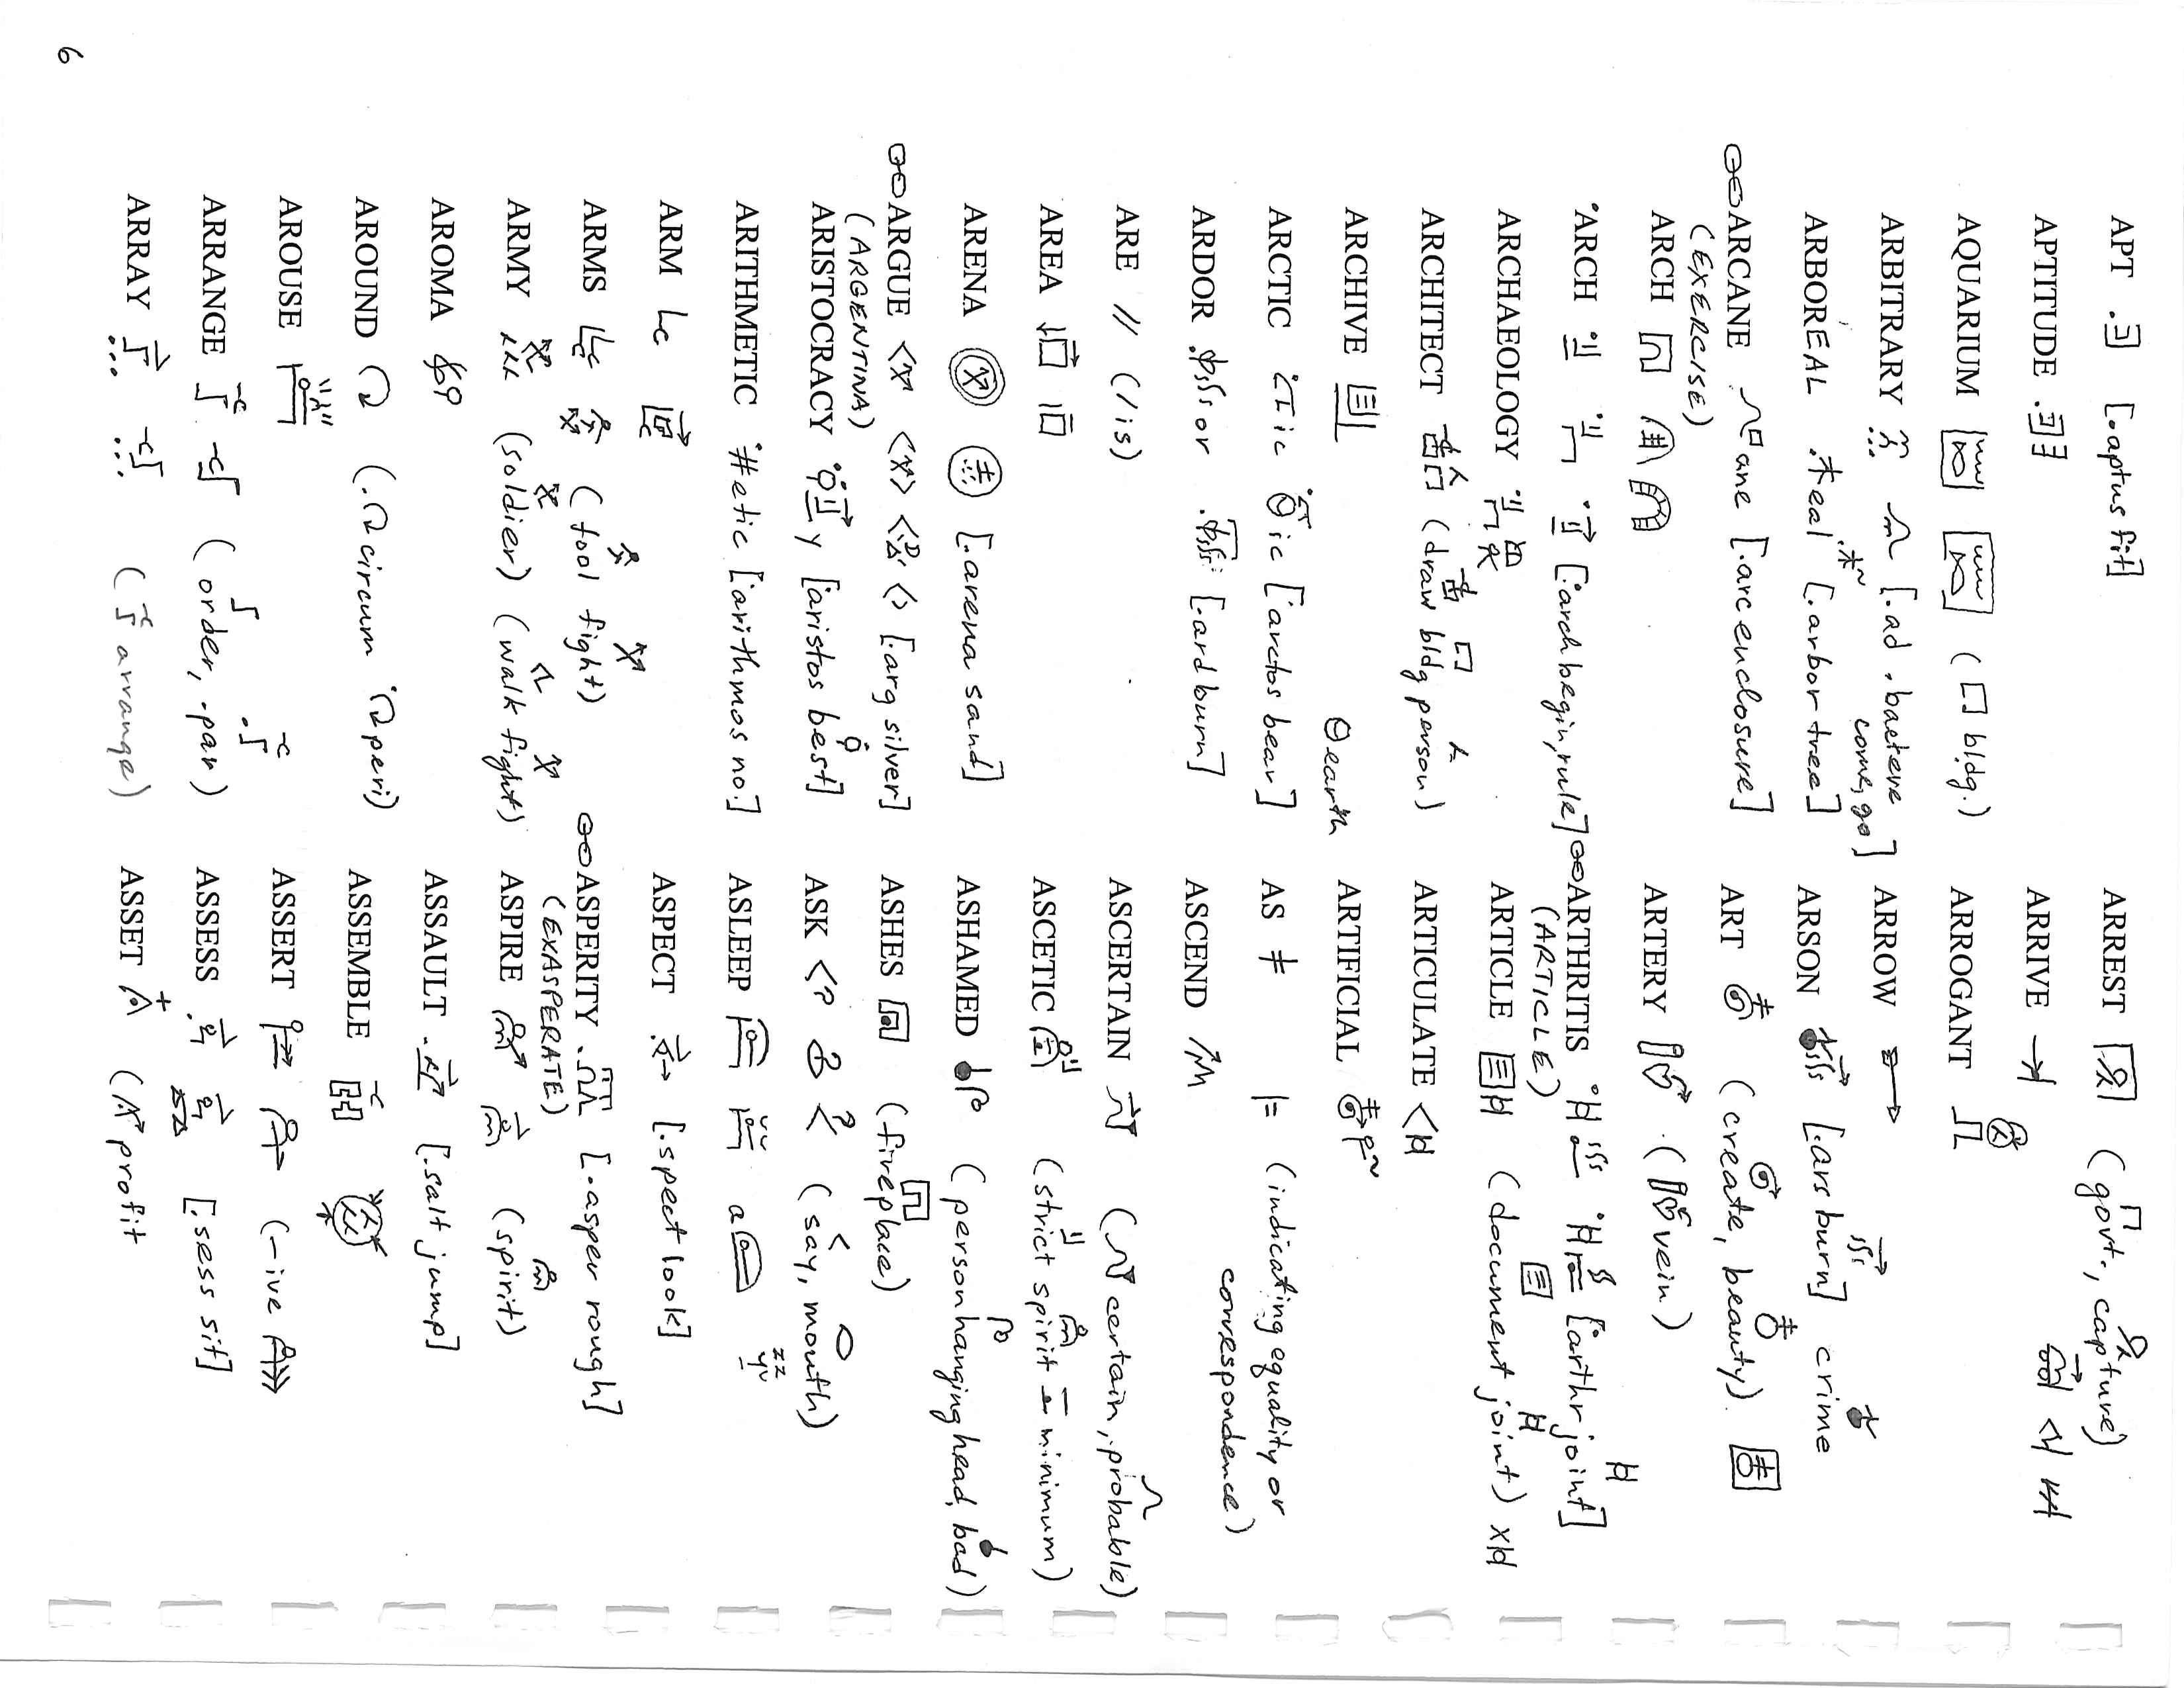 APT [.aptus fit]
APTITUDE
AQUARIUM (bldg.)
ARBITRARY [.ad .baetere come, go]
ARBOREAL eal [.arbor tree]
ARCANE ane [.arc enclosure]
(EXERCISE)
ARCH
ARCH [arch begin, rule]
ARCHAEOLOGY
ARCHITECT (draw bldg person)
ARCHIVE earth
ARCTIC ic ic [arctos bear]
ARDOR or [.ard burn]
ARE // (/is)
AREA
ARENA [.arena sand]
ARGUE [.arg silver]
(ARGENTINA)
ARISTOCRACY y [aristos best]
ARITHMETIC #etic [arithmos no.]
ARM
ARMS (tool fight)
ARMY (soldier) (walk fight)
AROMA
AROUND (. circum peri)
AROUSE
ARRANGE (order, .par)
ARRAY (arrange)
ARREST (govt., capture)
ARRIVE
ARROGANT
ARROW
ARSON [.ars burn] crime
ART (create, beauty)
ARTERY (vein)
ARTHRITIS [arthr joint]
(ARTICLE)
ARTICLE (document joint)
ARTICULATE
ARTIFICIAL
AS ≠ |= (indicating equality or
correspondence)
ASCEND
ASCERTAIN (certain, probable)
ASCETIC (strict spirit minimum)
ASHAMED (person hanging head, bad)
ASHES (fireplace)
ASK <? (say, mouth)
ASLEEP a zz
ASPECT [.spect look]
ASPERITY [.asper rough]
(EXASPERATE)
ASPIRE (spirit)
ASSAULT [.salt jump]
ASSEMBLE
ASSERT (-ive
ASSESS [.sess sit]
ASSET (profit
6